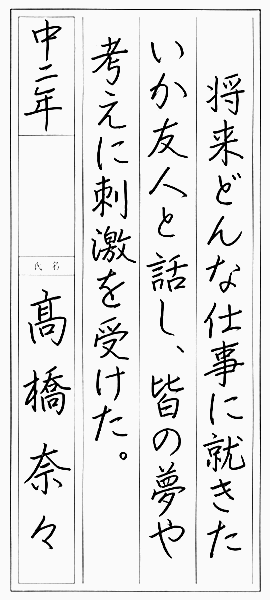 将来どんな仕事に就きた
いか友人と話し、皆の夢や
考えに刺激を受けた。
中二年
氏名
髙橋奈々